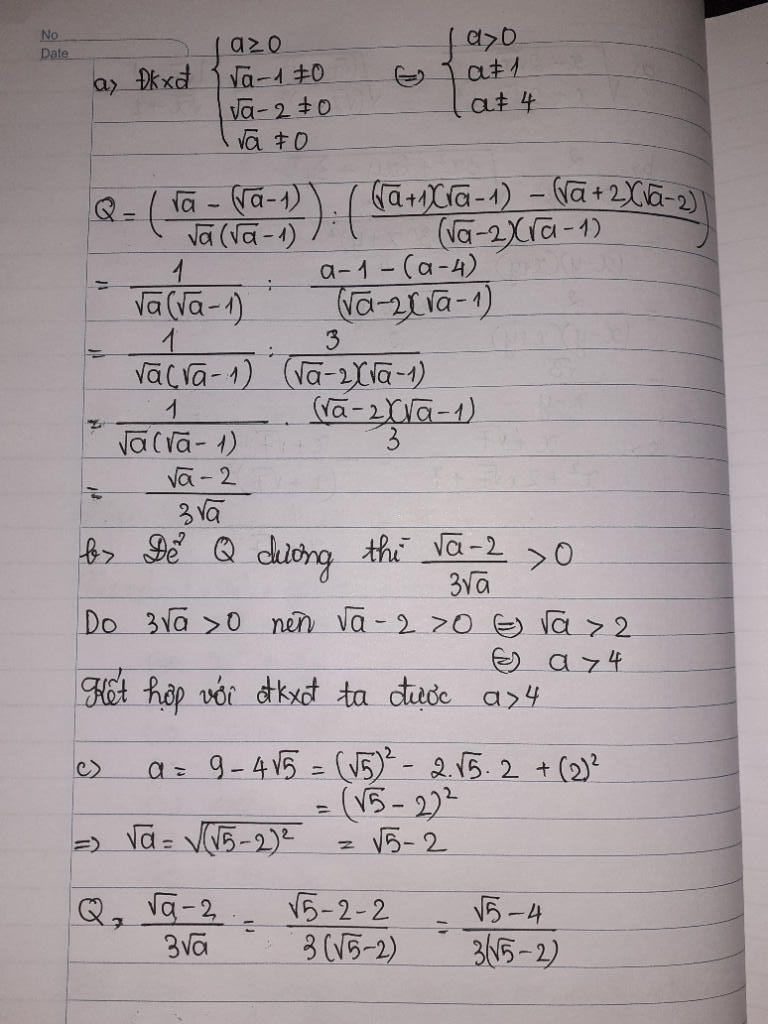 No
Date
a> Đkxđ { a ≥ 0 ; √a - 1 ≠ 0 ; √a - 2 ≠ 0 ; √a ≠ 0 ⇔ { a > 0 ; a ≠ 1 ; a ≠ 4
Q = ( (√a - (√a - 1)) / (√a(√a - 1)) ) : ( ((√a+1)(√a - 1) - (√a + 2)(√a - 2)) / ((√a - 2)(√a - 1)) )
= 1 / (√a(√a - 1)) : (a - 1 - (a - 4)) / ((√a - 2)(√a - 1))
= 1 / (√a(√a - 1)) : 3 / ((√a - 2)(√a - 1))
= 1 / (√a(√a - 1)) . ((√a - 2)(√a - 1)) / 3
= (√a - 2) / (3√a)
b> Để Q dương thì (√a - 2) / (3√a) > 0
Do 3√a > 0 nên √a - 2 > 0 ⇔ √a > 2
⇔ a > 4
Kết hợp với đkxđ ta được a > 4
c> a = 9 - 4√5 = (√5)² - 2.√5.2 + (2)²
= (√5 - 2)²
=> √a = √((√5 - 2)²) = √5 - 2
Q = (√a - 2) / (3√a) = (√5 - 2 - 2) / (3(√5 - 2)) = (√5 - 4) / (3(√5 - 2))